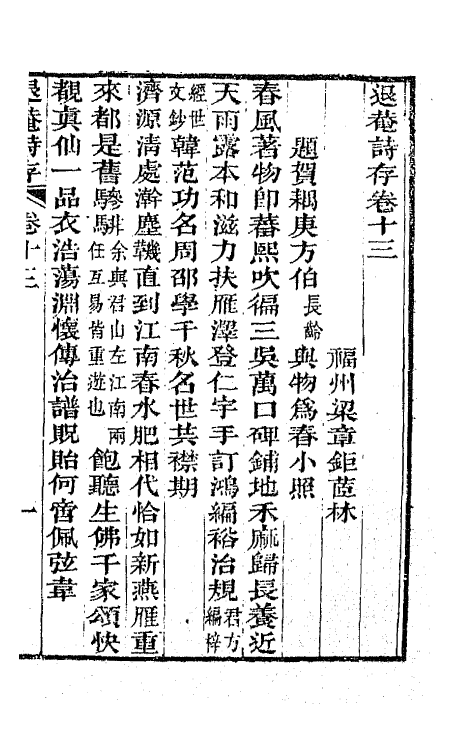 退菴詩存卷十三
福州梁章鉅茝林
題賀耦庚方伯長齡與物爲春小照
春風著物卽蕃熙吹徧三吳萬口碑鋪地禾麻歸長養近
天雨露本和滋力扶雁澤登仁宇手訂鴻編裕治規君方編梓
經世文鈔韓范功名周邵學千秋名世共襟期
濟源淸處澣塵鞿直到江南春水肥相代恰如新燕雁重
來都是舊驂騑余與君山左江南兩任互易皆重遊也飽聽生佛千家頌快
覩眞仙一品衣浩蕩淵懷傳治譜貺貽何啻佩弦韋
退菴詩存
卷十三
一